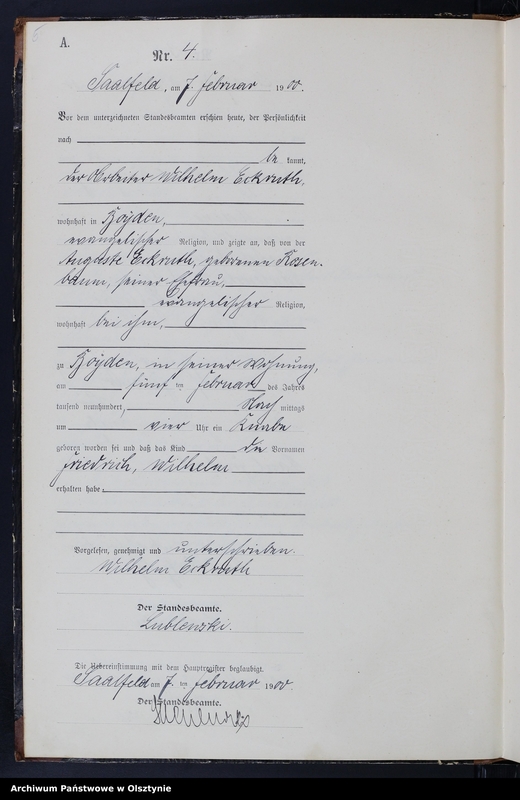 A.
Nr. 4.
Saalfeld, am 7. Februar 1900.
Vor dem unterzeichneten Standesbeamten erschien heute, der Persönlichkeit
nach
be kannt,
der Arbeiter Wilhelm Eckruth,
wohnhaft in Koyden,
evangelischer Religion, und zeigte an, daß von der
Auguste Eckruth, geborenen Rosen-
baum, seiner Ehefrau,
evangelischer Religion,
wohnhaft bei ihm,
zu Koyden, in seiner Wohnung,
am fünf ten Februar des Jahres
tausend neunhundert, Nach mittags
um vier Uhr ein Knabe
geboren worden sei und daß das Kind die Vornamen
Friedrich, Wilhelm
erhalten habe.
Vorgelesen, genehmigt und unterschrieben.
Wilhelm Eckruth
Der Standesbeamte.
Lublenski.
Die Uebereinstimmung mit dem Hauptregister beglaubigt.
Saalfeld am 7. ten Februar 1900.
Der Standesbeamte.
Archiwum Państwowe w Olsztynie